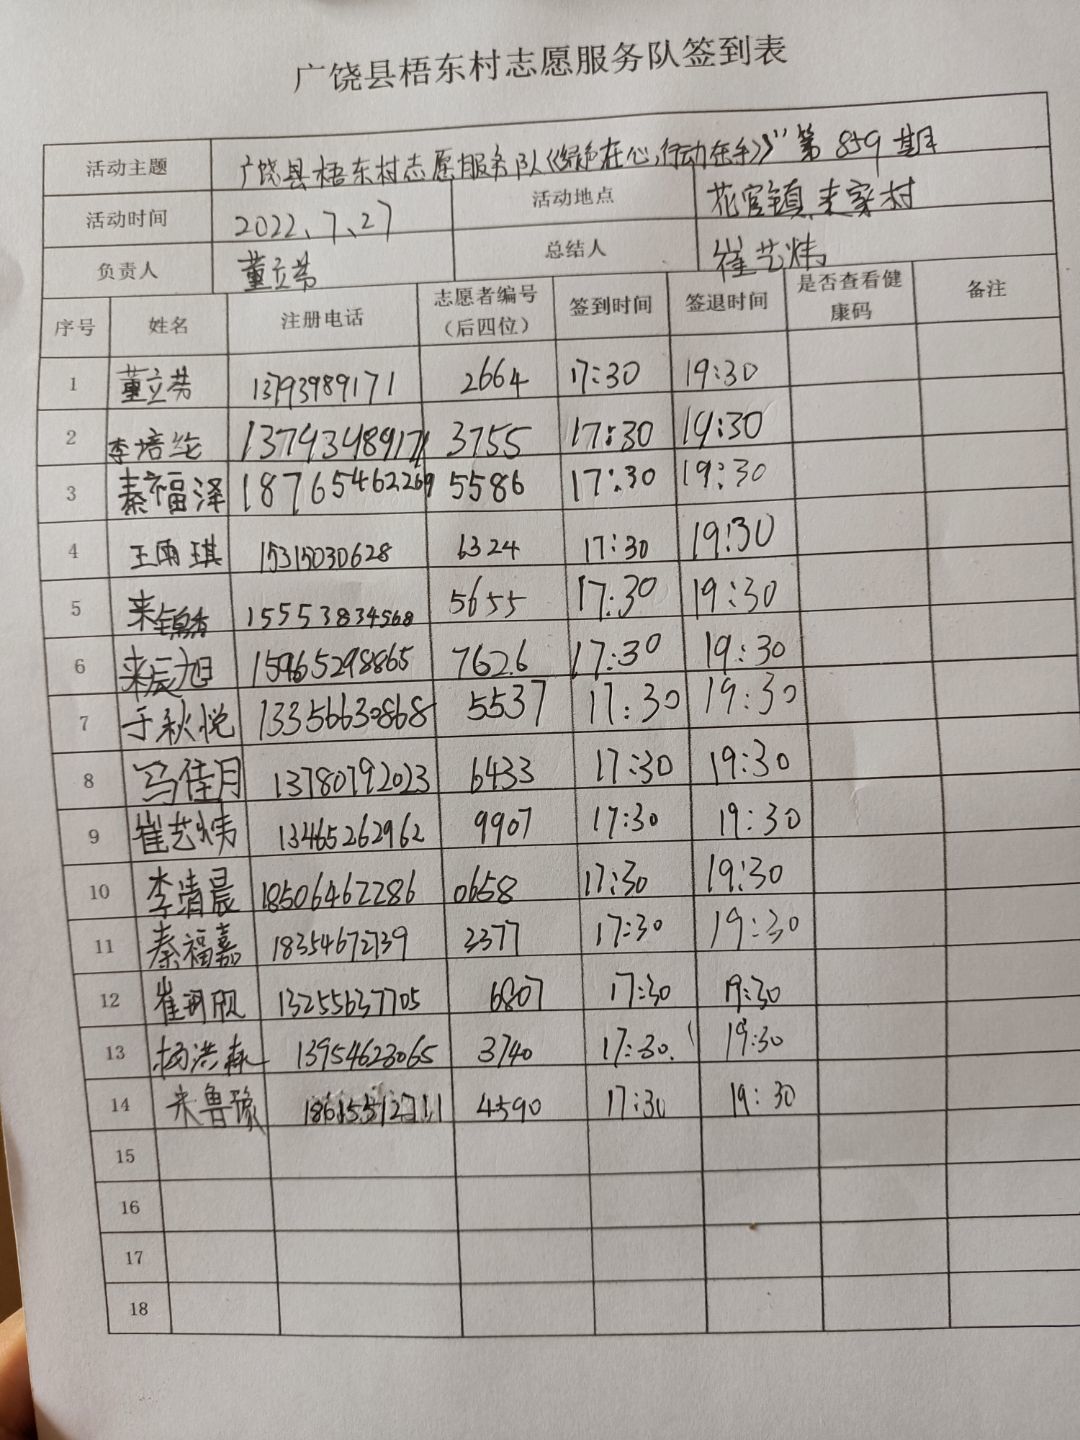 广饶县梧东村志愿服务队签到表
活动主题 广饶县梧东村志愿服务队《绿色在心,行动在手》"第859期
活动时间 2022、7、27 活动地点 花官镇来家村
负责人 董立芳 总结人 崔艺炜
序号 姓名 注册电话 志愿者编号（后四位） 签到时间 签退时间 是否查看健康码 备注
1 董立芳 13793989171 2664 17:30 19:30
2 李培纶 3755 17:30 19:30
3 秦福泽 18765462269 5586 17:30 19:30
4 王雨琪 15315030628 6324 17:30 19:30
5 来锦秀 15553834568 5655 17:30 19:30
6 来辰旭 15965298865 7626 17:30 19:30
7 于秋悦 13356630868 5537 17:30 19:30
8 马佳月 13780792023 6433 17:30 19:30
9 崔艺炜 13465262962 9907 17:30 19:30
10 李清晨 18506462286 0658 17:30 19:30
11 秦福嘉 18354672739 2377 17:30 19:30
12 崔珂欣 13255637705 6807 17:30 19:30
13 杨洪森 13954623065 3740 17:30 19:30
14 来鲁豫 18615512711 4590 17:30 19:30
15
16
17
18